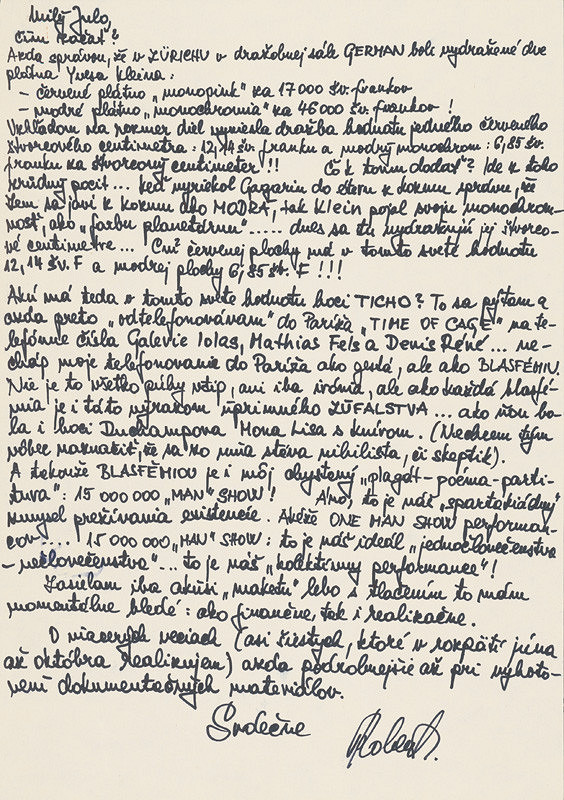 Milý Julo,
Čím začať?
Azda správou, že v ZÜRICHU v dražobnej sále GERMAN boli vydražené dve
plátna Yvesa Kleina:
- červené plátno „monopink" za 17 000 šv. frankov
- modré plátno „monochromia" za 46 000 šv. frankov!
Vzhľadom na rozmer diel vyniesla dražba hodnotu jedného červeného
štvorcového centimetra: 12,14 šv. franku a modrý monochrom: 6,85 šv.
franku za štvorcový centimeter!!! Čo k tomu dodať? Ide z toho
zrúdny pocit... keď vyriekol Gagarin do éteru z kozmu správu, že
Zem sa javí z kozmu ako MODRÁ, tak Klein pojal svoju monochrom-
nosť, ako „farbu planetárnu"..... dnes sa tu vydražujú jej štvorco-
vé centimetre... Cm² červenej plochy má v tomto svete hodnotu
12,14 šv. F a modrej plochy 6,85 šv. F !!!
Akú má teda v tomto svete hodnotu hoci TICHO? To sa pýtam a
azda preto „odtelefonovávam" do Paríža „TIME OF CAGE" na te-
lefónne čísla Galérie Iolas, Mathias Fels a Denis René... ne-
cháp moje telefonovanie do Paríža ako gestá, ale ako BLASFÉMIU.
Nie je to všetko púhy vtip, ani iba irónia, ale ako každá blasfé-
mia je i táto výrazom úprimného ZÚFALSTVA... ako ňou bo-
la i hoci Duchampova Mona Lisa s knírom. (Nechcem tým
vôbec naznačiť, že sa zo mňa stáva nihilista, či skeptik).
A takouže BLASFÉMIOU je i môj chystený „plagát-poéma-parti-
túra": 15 000 000 „MAN" SHOW! Áno, to je náš „spartakiádny"
zmysel prežívania existencie. Akéže ONE MAN SHOW performan-
cov.... 15 000 000 „MAN" SHOW: to je náš ideál „jednočlovečenstva
- nečlovečenstva"... to je náš „kolektívny performance"!
Zasielam iba akúsi „maketu" lebo s tlačením to mám
momentálne bledé: ako finančne, tak i realizačne.
O viacerých veciach (asi šiestych, ktoré v rozpätí júna
až októbra realizujem) azda podrobnejšie až pri vyhoto-
vení dokumentačných materiálov.
Srdečne Robert.